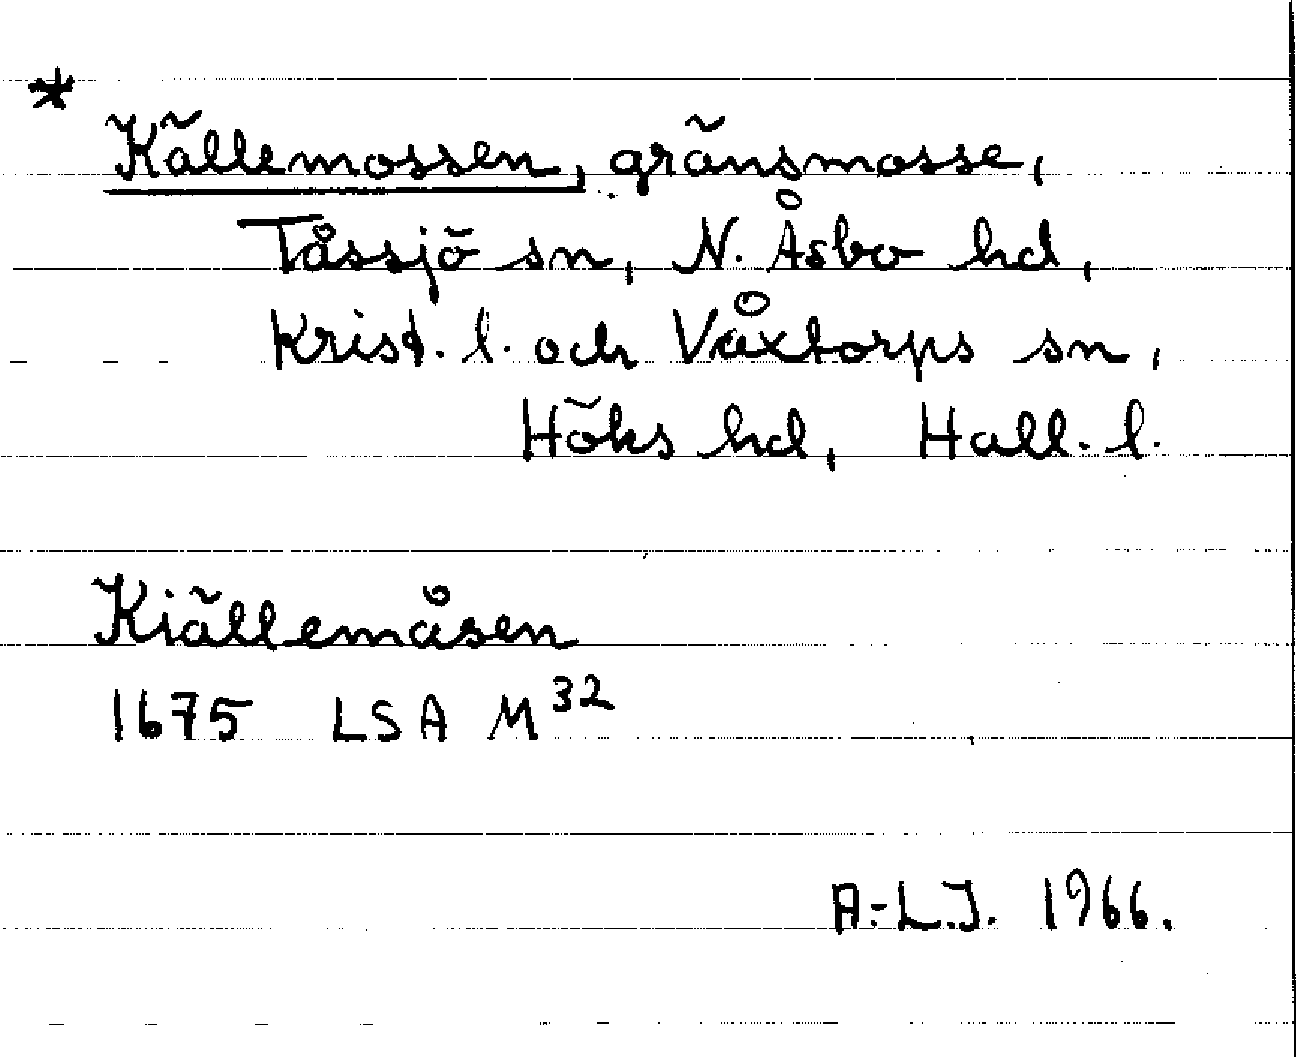 * Källemossen, gränsmosse,
Tåssjö sn, N. Åsbo hd,
Krist. l. och Våxtorps sn,
Höks hd, Hall. l.
Kiällemåsen
1675 LSA M³²
A.-L.J. 1966.